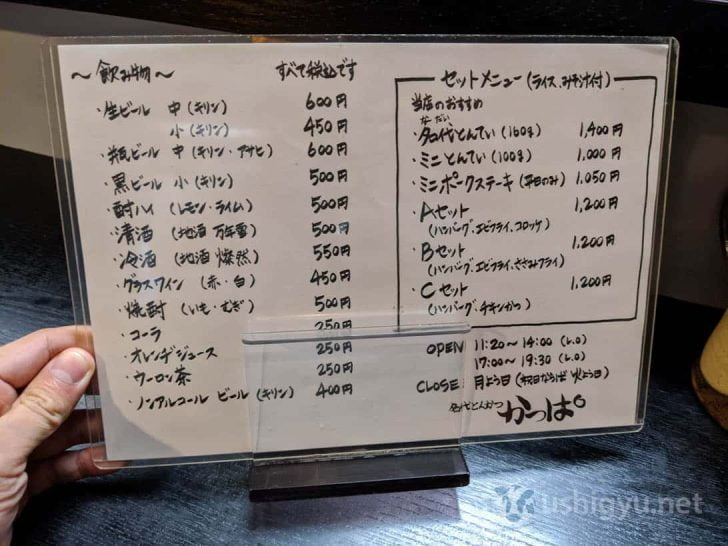 〜飲み物〜 すべて税込です
・生ビール 中(キリン) 600円
小(キリン) 450円
・瓶ビール 中(キリン・アサヒ) 600円
・黒ビール 小(キリン) 500円
・酎ハイ(レモン・ライム) 500円
・清酒(地酒 万年雪) 500円
・冷酒(地酒 燦然) 550円
・グラスワイン(赤・白) 450円
・焼酎(いも・むぎ) 500円
・コーラ 250円
・オレンヂジュース 250円
・ウーロン茶 250円
・ノンアルコール ビール(キリン) 400円
セットメニュー(ライス、みそ汁付)
当店のおすすめ
なだい
・名代とんてい(160g) 1,400円
・ミニとんてい(100g) 1,000円
・ミニポークステーキ(平日のみ) 1,050円
・Aセット 1,200円
(ハンバーグ、エビフライ、コロッケ)
・Bセット 1,200円
(ハンバーグ、エビフライ、ささみフライ)
・Cセット 1,200円
(ハンバーグ、チキンかつ)
OPEN 11:20〜14:00(L.O)
17:00〜19:30(L.O)
CLOSE 月よう日(祝日ならば 火よう日)
名代とんかつ かっぱ
ushigyu.net